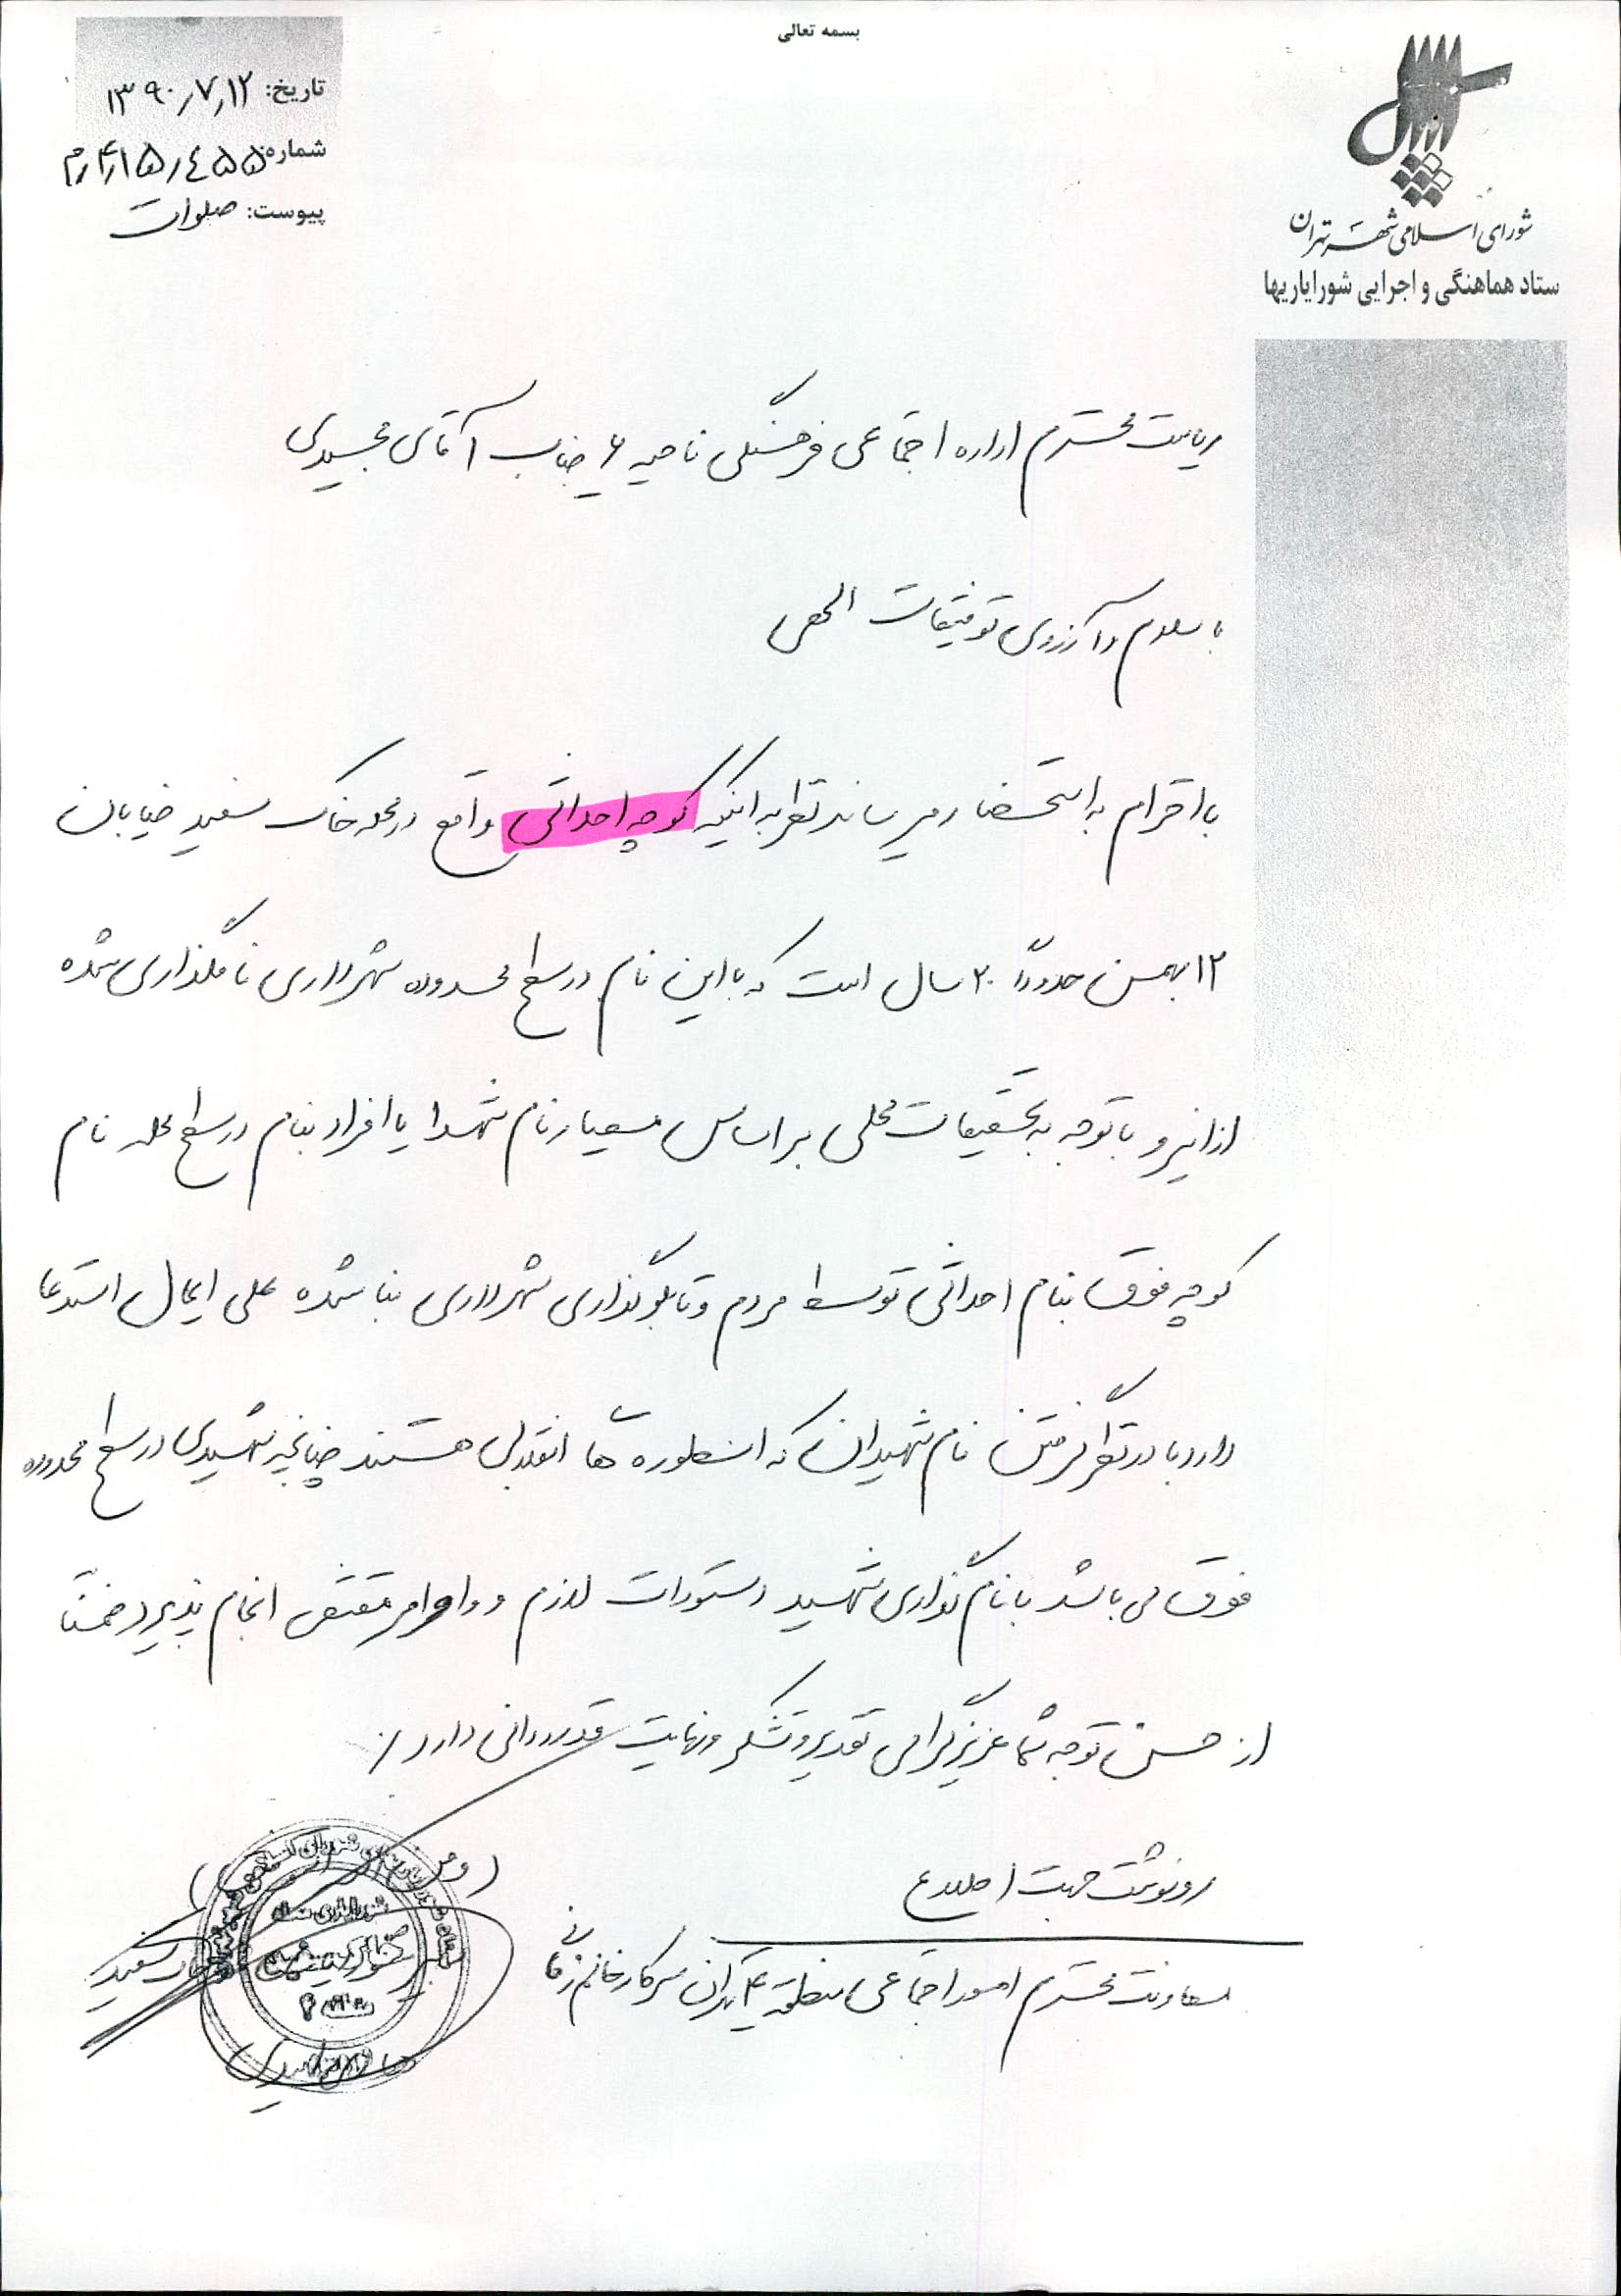 بسمه تعالی
تاریخ: ۱۳۹۰٫۷٫۱۲
شماره: ۴۵۵٫م٫۴٫۱۵
پیوست: صلوات
شورای اسلامی شهر تهران
ستاد هماهنگی و اجرایی شورایاریها
ریاست محترم اداره اجتماعی فرهنگی ناحیه ۶ جناب آقای مجیدی
با سلام و آرزوی توفیقات الهی
با احترام به استحضار میرساند نظر به اینکه کوچه احداثی واقع در محله خاک سفید خیابان
۱۲ بهمن حدوداً ۲۰ سال است که با این نام در سطح محدوده شهرداری نامگذاری شده
از اینرو با توجه به تحقیقات محلی بر اساس معیار نام شهدا یا افراد بنام در سطح محله نام
کوچه فوق بنام احداثی توسط مردم و تابلوگذاری شهرداری بنا شده علی ایحال استدعا
دارد با در نظر گرفتن نام شهیدان که اسطوره های انقلاب هستند چنانچه شهیدی در سطح محدوده
فوق می باشد با نام گذاری شهید دستورات لازم و اوامر مقتضی انجام پذیرد ضمناً
از حسن توجه شما عزیز گرامی تقدیر و تشکر و نهایت قدردانی دارد /
رونوشت جهت اطلاع
معاونت محترم امور اجتماعی منطقه ۴ تهران سرکار خانم زمانی
خاک سفید